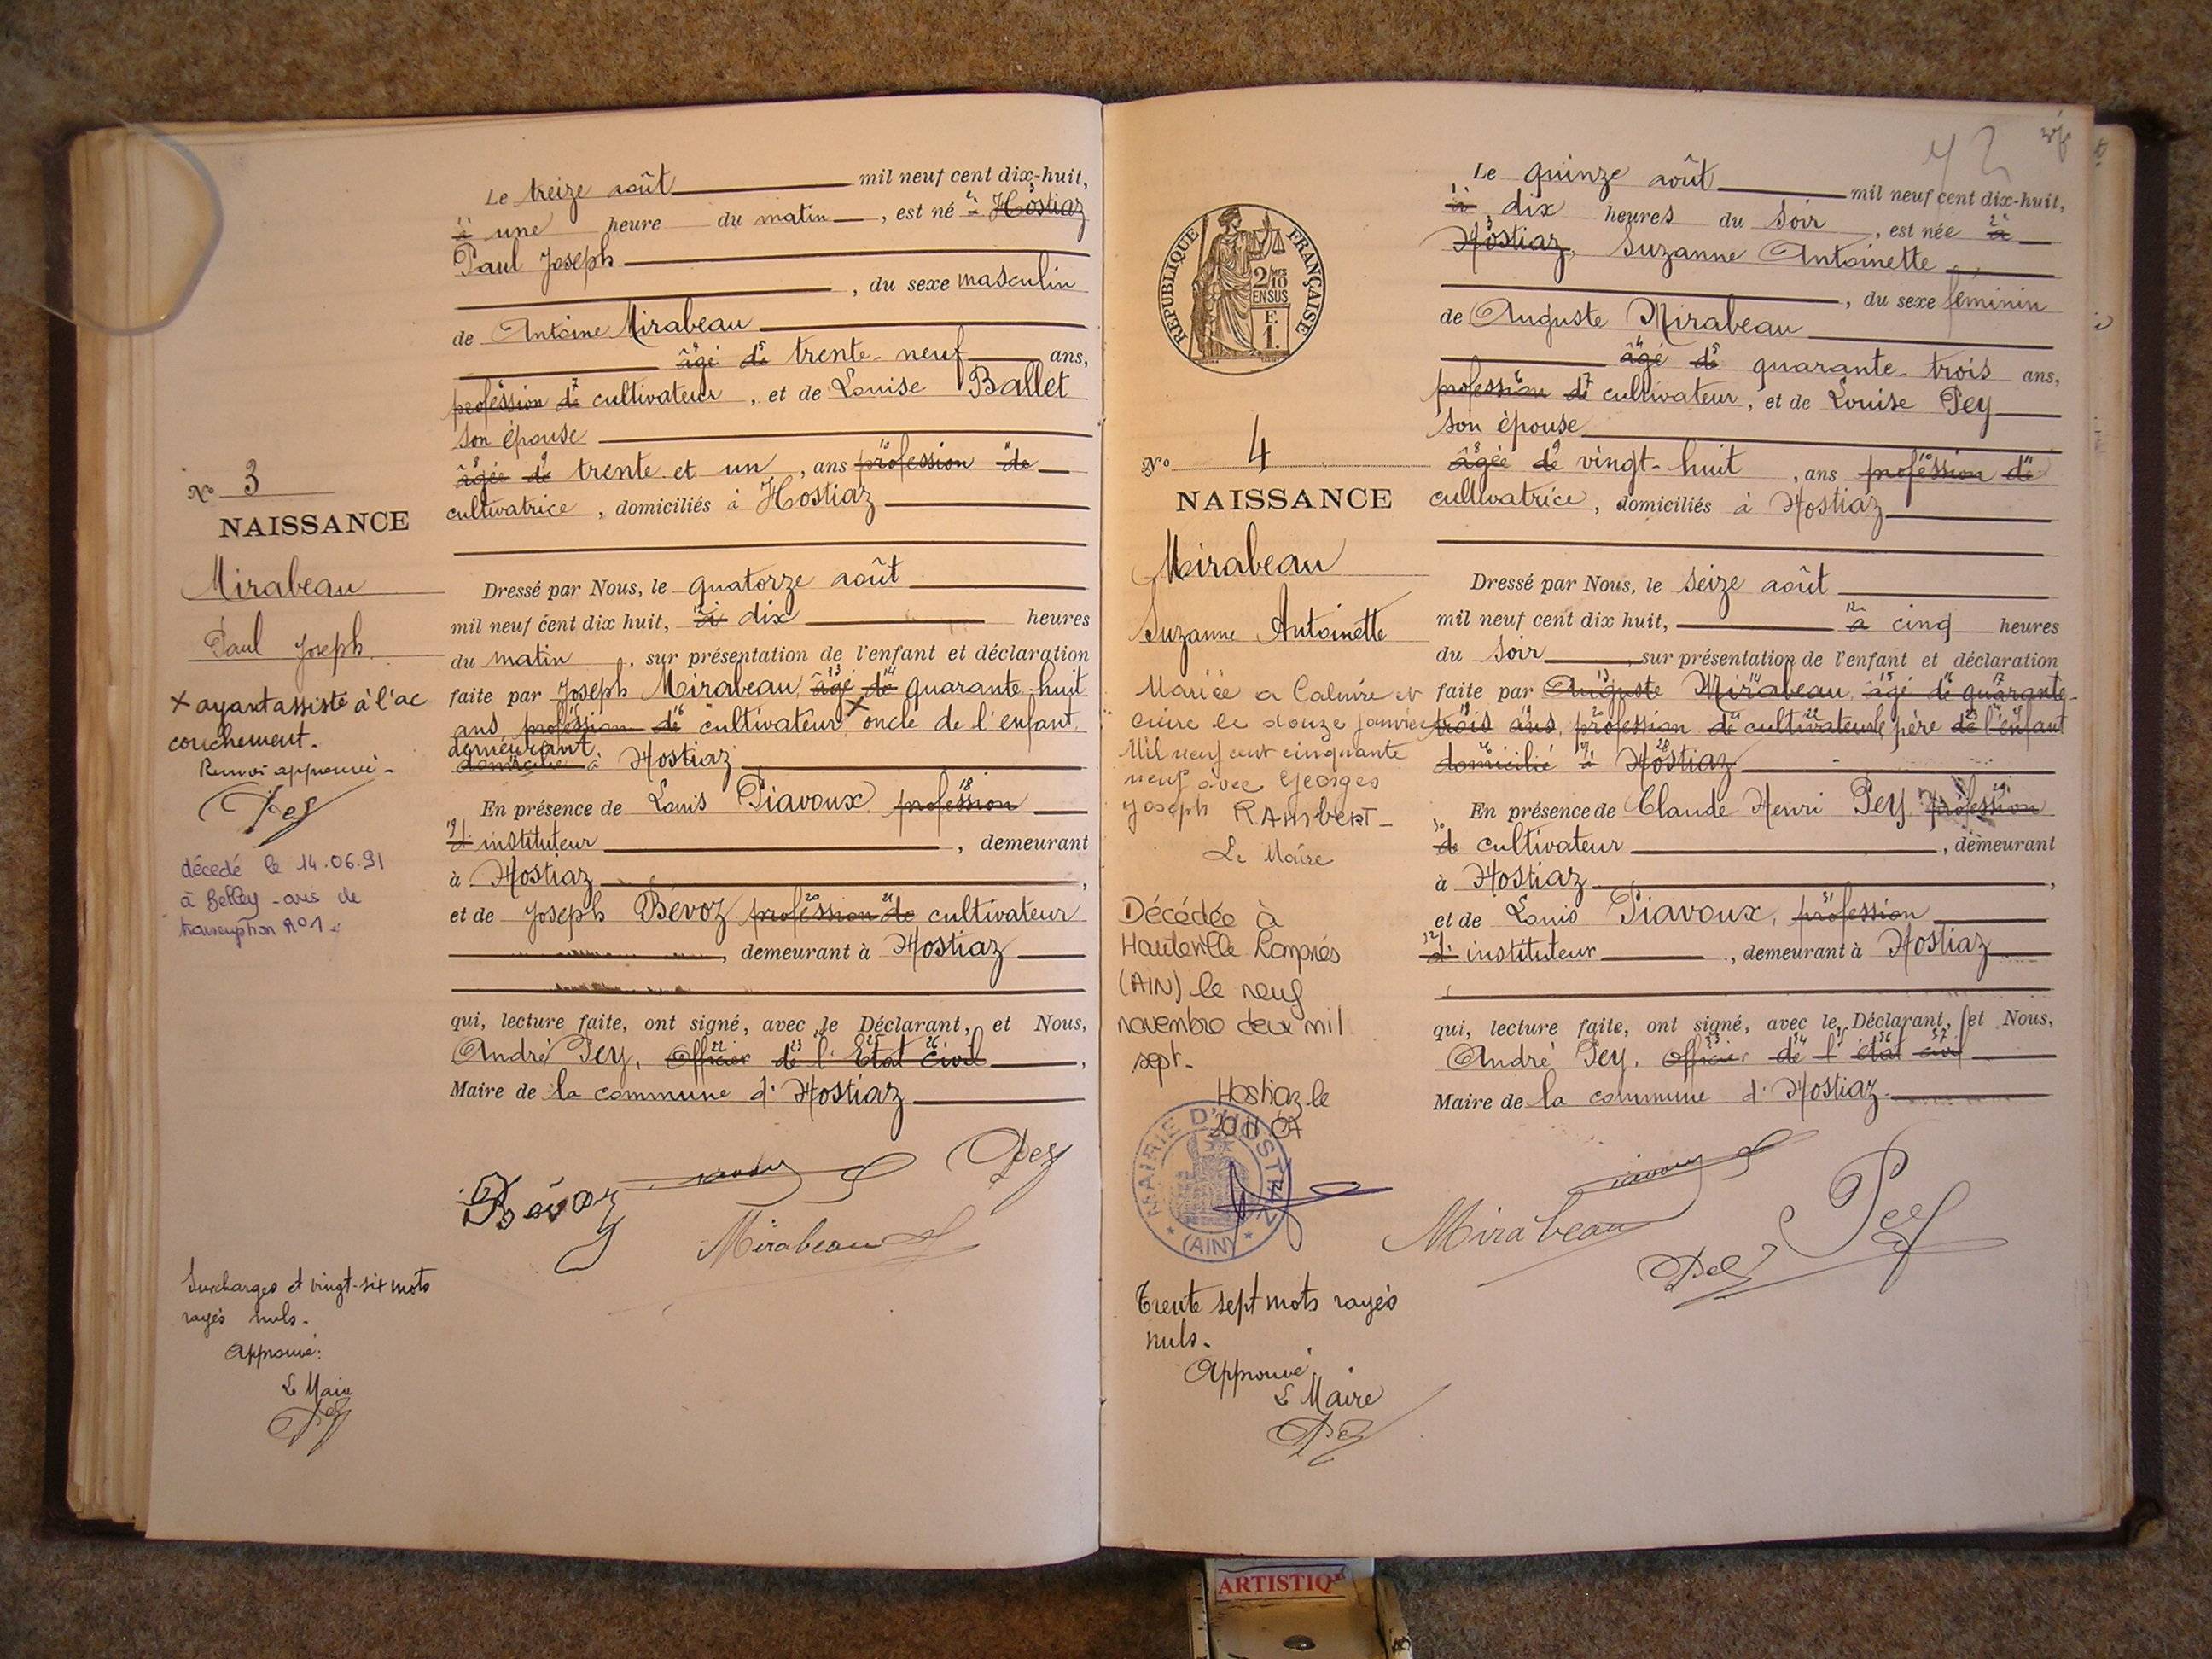 Le treize août mil neuf cent dix-huit,
à une heure du matin, est né à Hostiaz
Paul Joseph
, du sexe masculin
de Antoine Mirabeau
âgé de trente-neuf ans,
profession de cultivateur, et de Louise Ballet
son épouse
âgée de trente et un, ans profession de
cultivatrice, domiciliés à Hostiaz
N° 3
NAISSANCE
Mirabeau
Paul Joseph
x ayant assisté à l'ac
couchement.
Renvoi approuvé -
Pey
décédé le 14.06.91
à Belley - avis de
transcription n°1
Dressé par Nous, le quatorze août
mil neuf cent dix huit, à dix heures
du matin, sur présentation de l'enfant et déclaration
faite par Joseph Mirabeau, âgé de quarante-huit
ans, profession de cultivateur, x oncle de l'enfant,
demeurant
domicilié à Hostiaz
En présence de Louis Piavoux, profession
d'instituteur, demeurant
à Hostiaz,
et de Joseph Bévoz profession de cultivateur
, demeurant à Hostiaz
qui, lecture faite, ont signé, avec le Déclarant, et Nous,
André Pey, Officier de l'Etat Civil,
Maire de la commune d'Hostiaz
Bévoz
Pey
Mirabeau
Surcharges et vingt-six mots
rayés nuls.
Approuvé:
Le Maire
Pey
Le quinze août mil neuf cent dix-huit,
à dix heures du soir, est née à
Hostiaz, Suzanne Antoinette
, du sexe féminin
de Auguste Mirabeau
âgé de quarante-trois ans,
profession de cultivateur, et de Louise Pey
son épouse
âgée de vingt-huit, ans profession de
cultivatrice, domiciliés à Hostiaz
REPUBLIQUE FRANÇAISE
2/10 MES
EN SUS
F.
1.
N° 4
NAISSANCE
Mirabeau
Suzanne Antoinette
Mariée à Caluire et
Cuire le douze janvier
Mil neuf cent cinquante
neuf avec Georges
Joseph RAMBERT -
Le Maire
Décédée à
Hauteville Lompnés
(AIN) le neuf
novembre deux mil
sept.
Hostiaz le
20 11 07
MAIRIE D'HOSTIAZ
(AIN)
Dressé par Nous, le seize août
mil neuf cent dix huit, à cinq heures
du soir, sur présentation de l'enfant et déclaration
faite par Auguste Mirabeau, âgé de quarante-
trois ans, profession de cultivateur, le père de l'enfant
domicilié à Hostiaz
En présence de Claude Henri Pey, profession
de cultivateur, demeurant
à Hostiaz,
et de Louis Piavoux, profession
d'instituteur, demeurant à Hostiaz
qui, lecture faite, ont signé, avec le Déclarant, et Nous,
André Pey, Officier de l'état civil
Maire de la commune d'Hostiaz.
Mirabeau
Pey
Pey
Trente sept mots rayés
nuls.
Approuvé,
Le Maire
Pey
ARTISTIQ